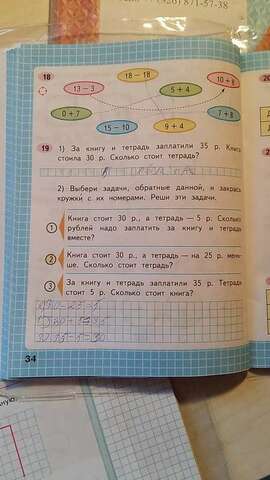 871-57-38
18
18 − 18
10 + 8
13 − 3
5 + 4
0 + 7
7 + 8
15 − 10
9 + 4
19 1) За книгу и тетрадь заплатили 35 р. Книга
стоила 30 р. Сколько стоит тетрадь?
2) Выбери задачи, обратные данной, и закрась
кружки с их номерами. Реши эти задачи.
1 Книга стоит 30 р., а тетрадь — 5 р. Сколько
рублей надо заплатить за книгу и тетрадь
вместе?
2 Книга стоит 30 р., а тетрадь — на 25 р. мень-
ше. Сколько стоит тетрадь?
3 За книгу и тетрадь заплатили 35 р. Тетрадь
стоит 5 р. Сколько стоит книга?
34